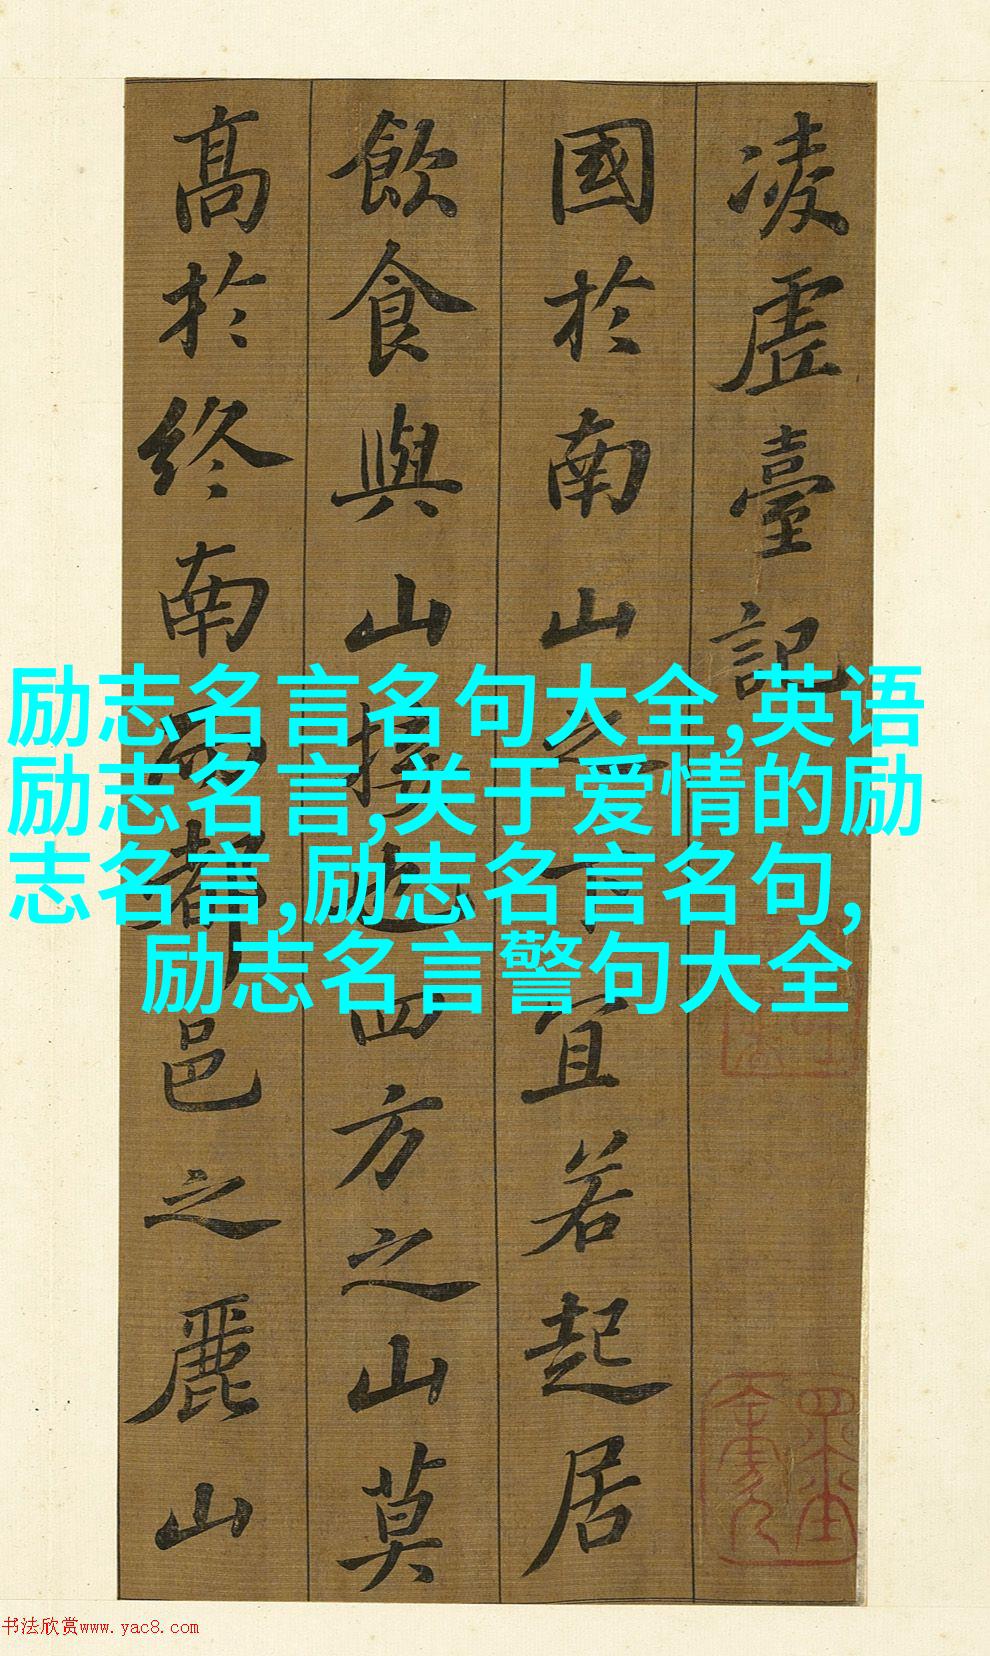 凌虛臺記
國於南山之下宜若起居
飲食與山接也四方之山莫
高於終南而都邑之麗山
励志名言名句大全,英语
励志名言,关于爱情的励
志名言,励志名言名句,
励志名言警句大全
书法欣赏www.yac8.com